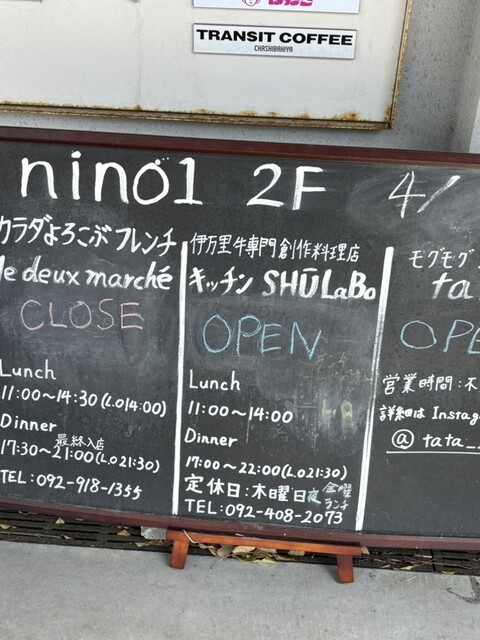 TRANSIT COFFEE
CHASHIBAHIYA
nino1 2F 4/
カラダよろこぶフレンチ
le deux marché
CLOSE
Lunch
11:00〜14:30(L.O14:00)
Dinner
最終入店
17:30〜21:00(L.O21:30)
TEL:092-918-1355
伊万里牛専門創作料理店
キッチン SHŪLaBo
OPEN
Lunch
11:00〜14:00
Dinner
17:00〜22:00(L.O21:30)
定休日:木曜日夜 金曜ランチ
TEL:092-408-2073
モグモグ
ta
OPE
営業時間:不
詳細は Instag
@tata_